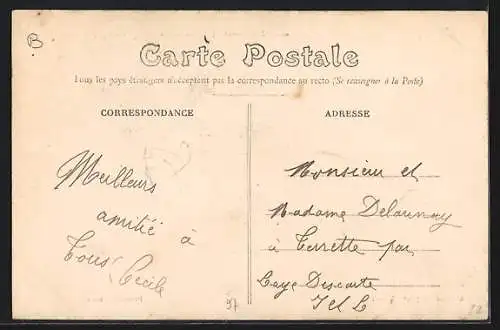 B
Carte Postale
Tous les pays étrangers n'acceptent pas la correspondance au recto (Se renseigner à la Poste)
CORRESPONDANCE
ADRESSE
Meilleurs
amitié à
Tous Cecile
Monsieur et
Madame Delaunay
à Terrette par
Laye Descarte
I et L
37